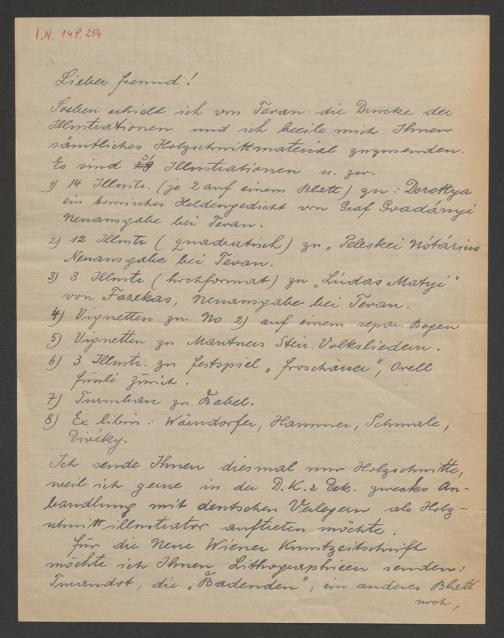 I.N. 148.254
Lieber Freund!
Soeben erhielt ich von Tevan die Drucke der
Illustrationen und ich beeile mich Ihnen
sämtliches Holzschnittmaterial zuzusenden.
Es sind Illustrationen u. zw.
1) 14 Illustr. (je 2 auf einem Blatt) zu: Dorottya
ein komisches Heldengedicht von Graf Gvadányi
Neuausgabe bei Tevan.
2) 12 Illustr (quadratisch) zu "Peleskei Nótárius
Neuausgabe bei Tevan.
3) 3 Illustr (hochformat) zu "Lúdas Matyi"
von Fazekas, Neuausgabe bei Tevan.
4) Vignetten zu No 2) auf einem separ. Bogen
5) Vignetten zu Mautners Stei. Volksliedern.
6) 3 Illustr. zu Festspiel "Froschauer", Orell
Füssli Zürich.
7) Turmbau zu Babel.
8) Ex libris: Wärndorfer, Hammer, Schmale,
Diveky.
Ich sende Ihnen diesmal nur Holzschnitte,
weil ich gerne in der D.K. & Dek. zwecks An-
bandlung mit deutschen Verlegern als Holz-
schnittillustrator auftreten möchte.
Für die Neue Wiener Kunstzeitschrift
möchte ich Ihnen Lithographieen senden:
die "Badenden", ein anderes Blatt
noch,